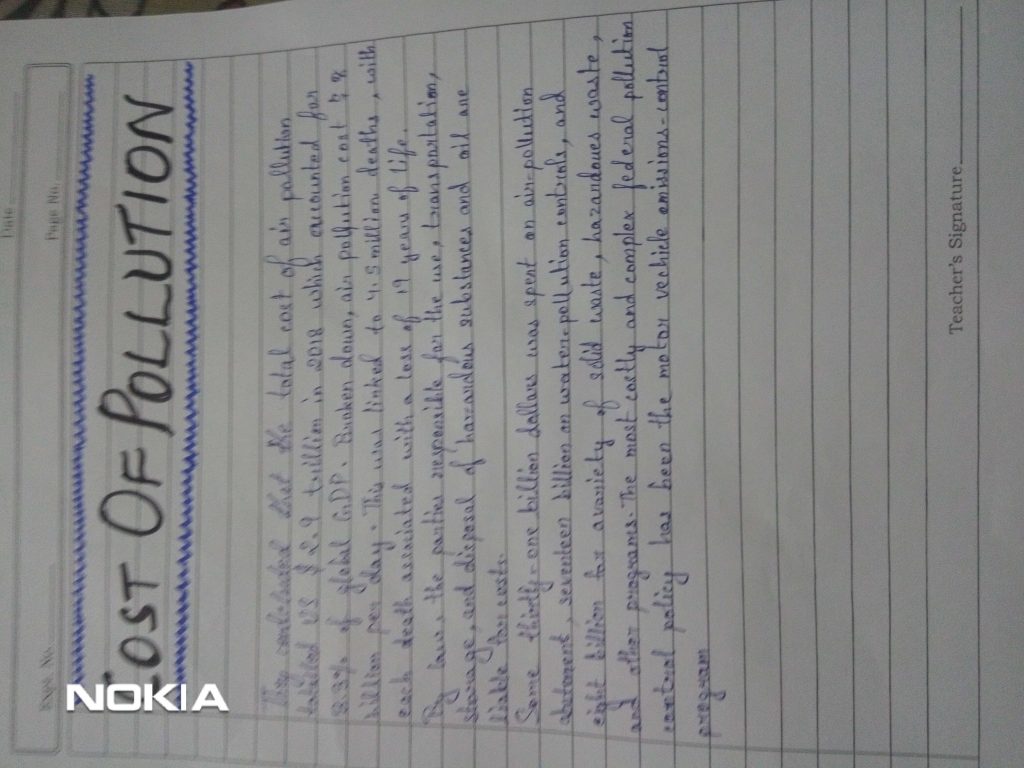 Date
Expt. No.
Page No.
COST OF POLLUTION
They calculated that the total cost of air pollution
totalled US $ 2.9 trillion in 2018 which accounted for
3.3% of global GDP. Broken down, air pollution cost $ 8
billion per day. This was linked to 4.5 million deaths, with
each death associated with a loss of 19 years of life.
By law, the parties responsible for the use, transportation,
storage, and disposal of hazardous substances and oil are
liable for costs.
Some thirty-one billion dollars was spent on air-pollution
abatement, seventeen billion on water-pollution controls, and
eight billion for a variety of solid waste, hazardoues waste,
and other programs. The most costly and complex federal pollution
control policy has been the motor vechicle emissions-control
program
Teacher's Signature
NOKIA